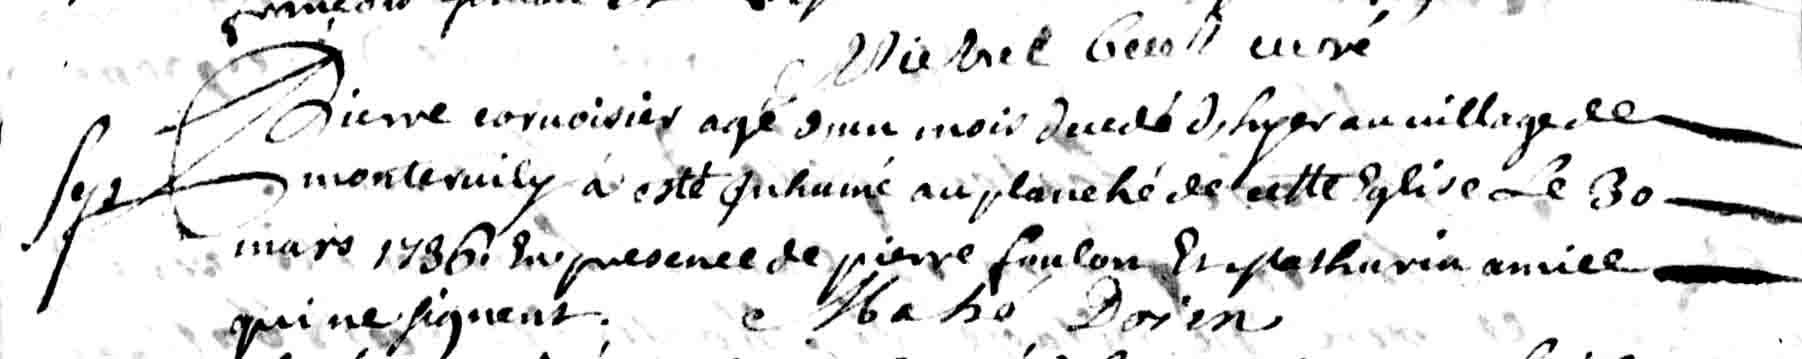 Pierre cornoisier agé d'un mois decedé d'hyer au village de
montervily à esté Inhumé au planché de cette Eglise Le 30
mars 1736. En presence de pierre foulon Et Mathurin amice
qui ne signent. Mahé Doien